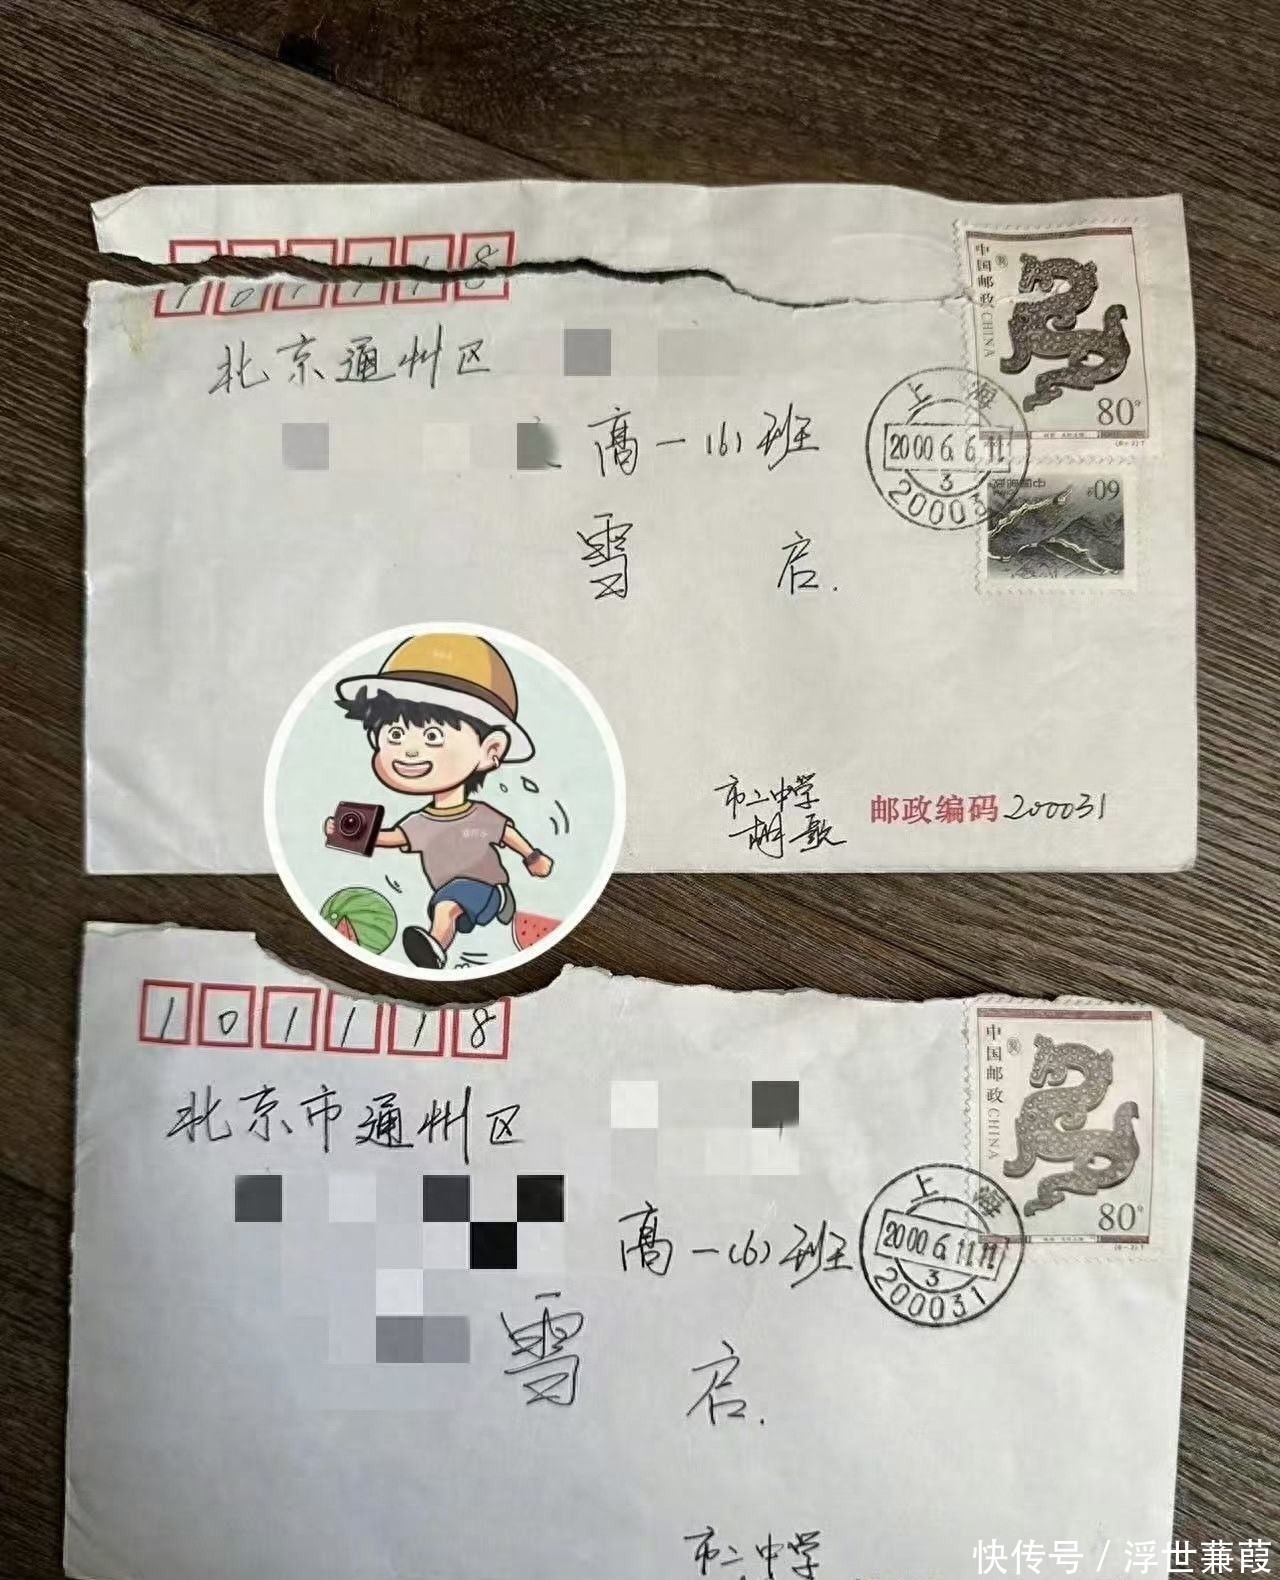 101118
北京通州区
高一(6)班
雪 启.
中国邮政
CHINA
80分
上海
2000.6.6.11
3
20003
中国邮政
60分
市二中学
胡歌
邮政编码 200031
101118
北京市通州区
高一(6)班
雪 启.
中国邮政
CHINA
80分
上海
2000.6.11.11
3
200031
市二中学
快传号 / 浮世蒹葭